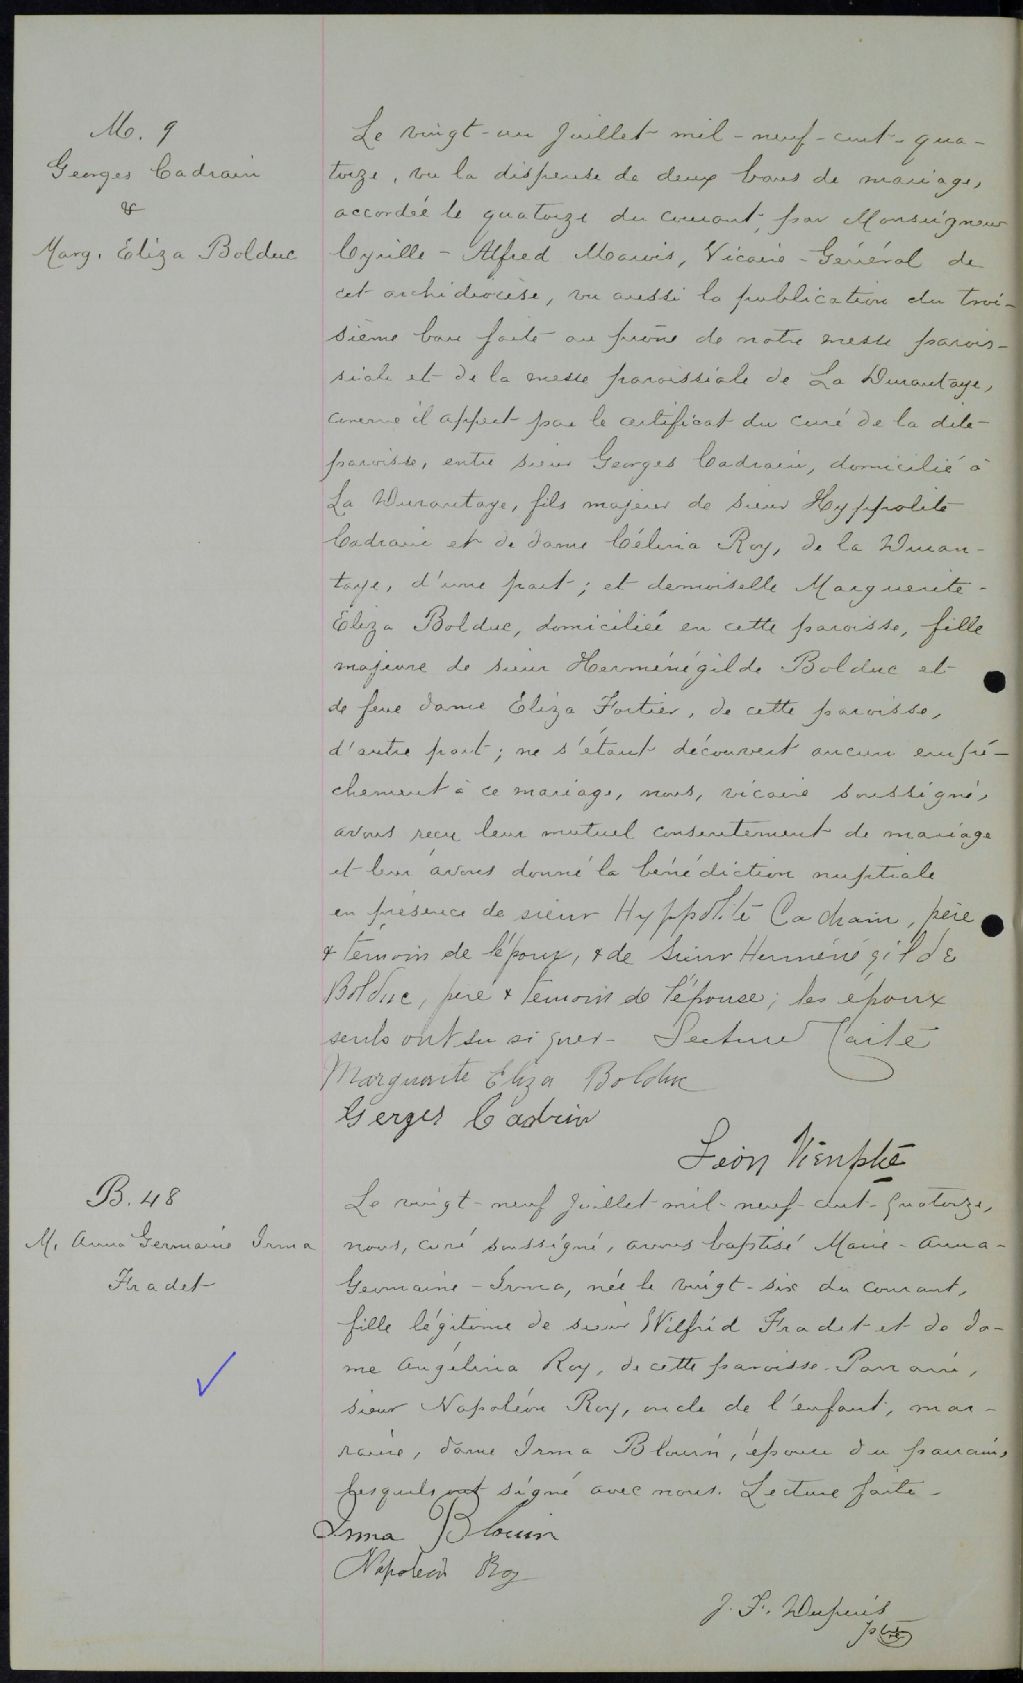 M. 9
Georges Cadrain
&
Marg. Eliza Bolduc
Le vingt-un Juillet mil-neuf-cent-qua-
torze, vu la dispense de deux bans de mariage,
accordée le quatorze du courant, par Monseigneur
Cyrille-Alfred Marois, Vicaire-Général de
cet archidiocèse, vu aussi la publication du troi-
sième ban faite au prône de notre messe parois-
siale et de la messe paroissiale de La Durantaye,
comme il appert par le certificat du curé de la dite
paroisse, entre sieur Georges Cadrain, domicilié à
La Durantaye, fils majeur de sieur Hyppolite
Cadrain et de dame Célina Roy, de la Duran-
taye, d'une part; et demoiselle Marguerite-
Eliza Bolduc, domiciliée en cette paroisse, fille
majeure de sieur Herménégilde Bolduc et
de feue dame Eliza Fortier, de cette paroisse,
d'autre part; ne s'étant découvert aucun empê-
chement à ce mariage, nous, vicaire soussigné,
avons reçu leur mutuel consentement de mariage
et leur avons donné la bénédiction nuptiale
en présence de sieur Hyppolite Cadrain, père
& témoin de l'époux, & de sieur Herménégilde
Bolduc, père & témoin de l'épouse; les époux
seuls ont su signer. Lecture faite
Marguerite Eliza Bolduc
Gerges Cadrin
Léon
B. 48
M. Anna Germaine Irma
Fradet
Le vingt-neuf Juillet mil-neuf-cent-quatorze,
nous, curé soussigné, avons baptisé Marie-Anna-
Germaine-Irma, née le vingt-six du courant,
fille légitime de sieur Wilfrid Fradet et de da-
me Angélina Roy, de cette paroisse. Parrain,
sieur Napoléon Roy, oncle de l'enfant, mar-
raine, dame Irma Blouin, épouse du parrain,
lesquels ont signé avec nous. Lecture faite.
Irma Blouin
Napoléon Roy
J. F. Dupuis
ptre